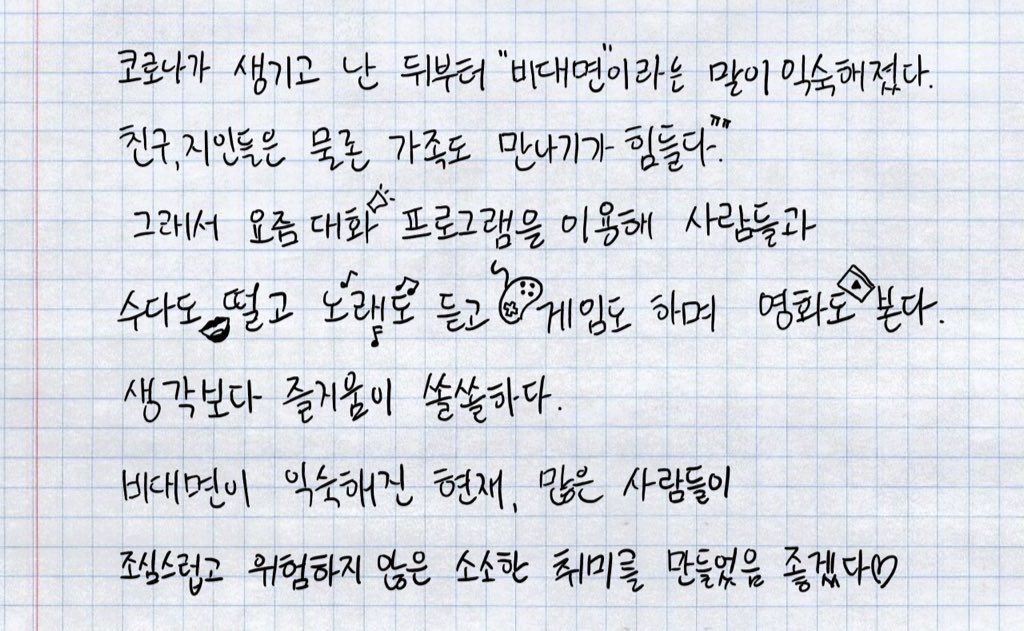 코로나가 생기고 난 뒤부터 "비대면"이라는 말이 익숙해졌다.
친구, 지인들은 물론 가족도 만나기가 힘들다.ㅠㅠ
그래서 요즘 대화 프로그램을 이용해 사람들과
수다도 떨고 노래도 듣고 게임도 하며 영화도 본다.
생각보다 즐거움이 쏠쏠하다.
비대면이 익숙해진 현재, 많은 사람들이
조심스럽고 위험하지 않은 소소한 취미를 만들었음 좋겠다♡